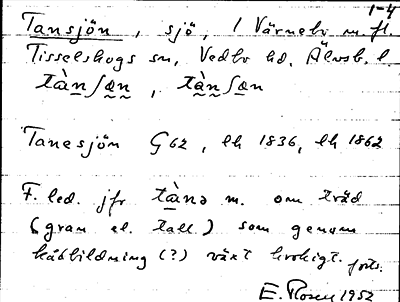 1-4
Tansjön, sjö, i Värnebo m. fl.
Tisselskogs sn, Vedbo hd, Älvsb. l.
tàn∫æn, tàn∫ən
Tanesjön G62, lh 1836, lh 1862
F. led. jfr tànə m. om träd
(gran el. tall) som genom
kådbildning (?) växt krokigt. forts.
E. Rosen 1952